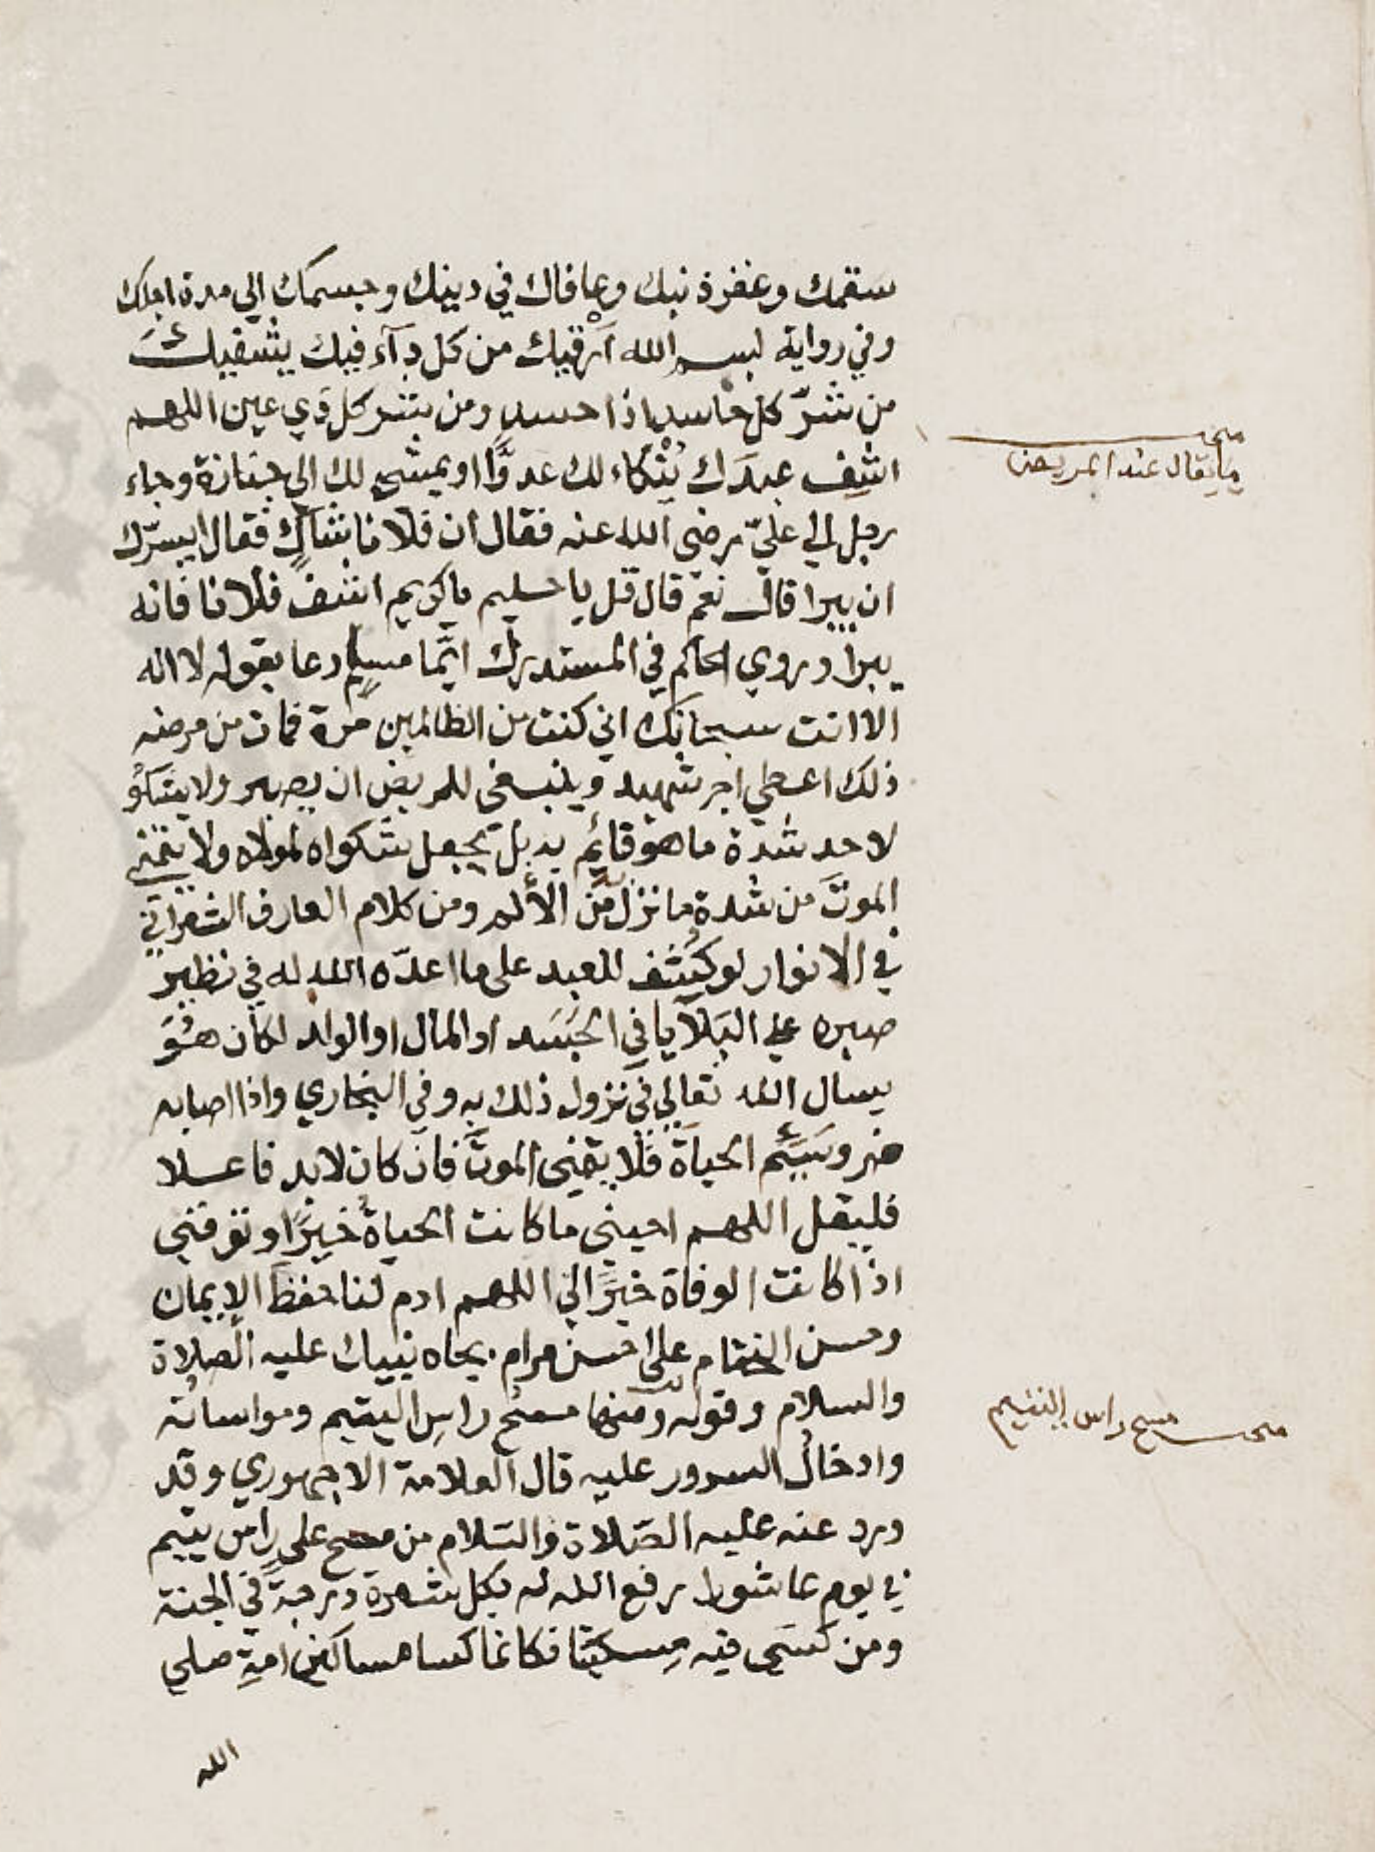 سقمك وغفر ذنبك وعافاك في دينك وجسمك الي مدة اجلك
وفي رواية بسم الله ارقيك من كل دآء فيك يشفيك
من شر كل حاسد اذا حسد ومن شر كل ذي عين اللهم
اشف عبدك ينكاء لك عدوًّا او يمشي لك الي جنازة وجاء
رجل الي عليّ رضي الله عنه فقال ان فلانا شاكٍ فقال ايسرّك
ان يبرا قال نعم قال قل يا حليم يا كريم اشف فلانا فانه
يبرا وروي الحاكم في المستدرك ايّما مسلم دعا بقوله لا اله
الا انت سبحانك اني كنت من الظالمين مرة فمات من مرضه
ذلك اعطي اجر شهيد وينبغي للمريض ان يصبر ولا يشكو
لاحد شدة ما هو قائم به بل يجعل شكواه لمولاه ولا يتمني
الموت من شدة ما نزل من الألم ومن كلام العارف الشعراني
في الانوار لو كُشف للعبد علي ما اعدّه الله له في نظير
صبره علي البلايا في الجسد او المال او الولد لكان هو
يسال الله تعالي في نزول ذلك به وفي البخاري واذا اصابه
ضر وسئم الحياة فلا يتمني الموت فان كان لابد فاعلا
فليقل اللهم احيني ما كانت الحياة خيرًا وتوفني
اذا كانت الوفاة خيرًا لي اللهم ادم لنا حفظ الايمان
وحسن الختام علي احسن مرام بجاه نبيك عليه الصلاة
والسلام وقوله ومنها مسح راس اليتيم ومواساته
وادخال السرور عليه قال العلامة الاجهوري وقد
ورد عنه عليه الصّلاة والسّلام من مسح علي راس يتيم
في يوم عاشورا رفع الله له بكل شعرة درجة في الجنة
ومن كسي فيه مسكينا فكانما كسا مساكين امة صلي
الله
ما يقال عند المريض
مسح راس اليتيم